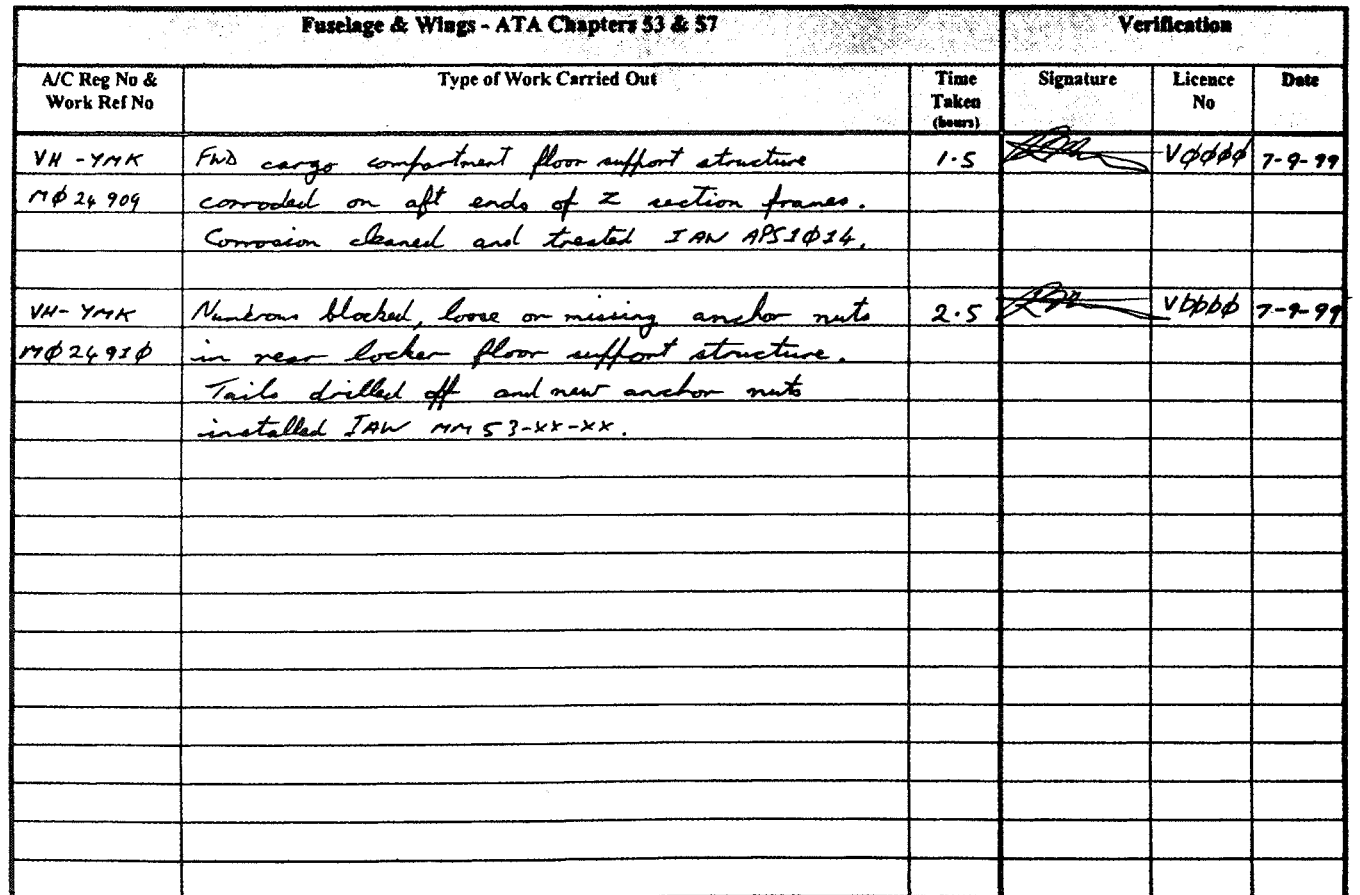 Fuselage & Wings - ATA Chapters 53 & 57 Verification
A/C Reg No & Work Ref No Type of Work Carried Out Time Taken (hours) Signature Licence No Date
VH-YMK FWD cargo compartment floor support structure 1.5 VØØØØ 7-9-99
MØ24909 corroded on aft ends of Z section frames.
Corrosion cleaned and treated IAW APS1Ø14.
VH-YMK Numerous blocked, loose or missing anchor nuts 2.5 VØØØØ 7-9-99
MØ2491Ø in rear locker floor support structure.
Tails drilled off and new anchor nuts
installed IAW MM 53-XX-XX.